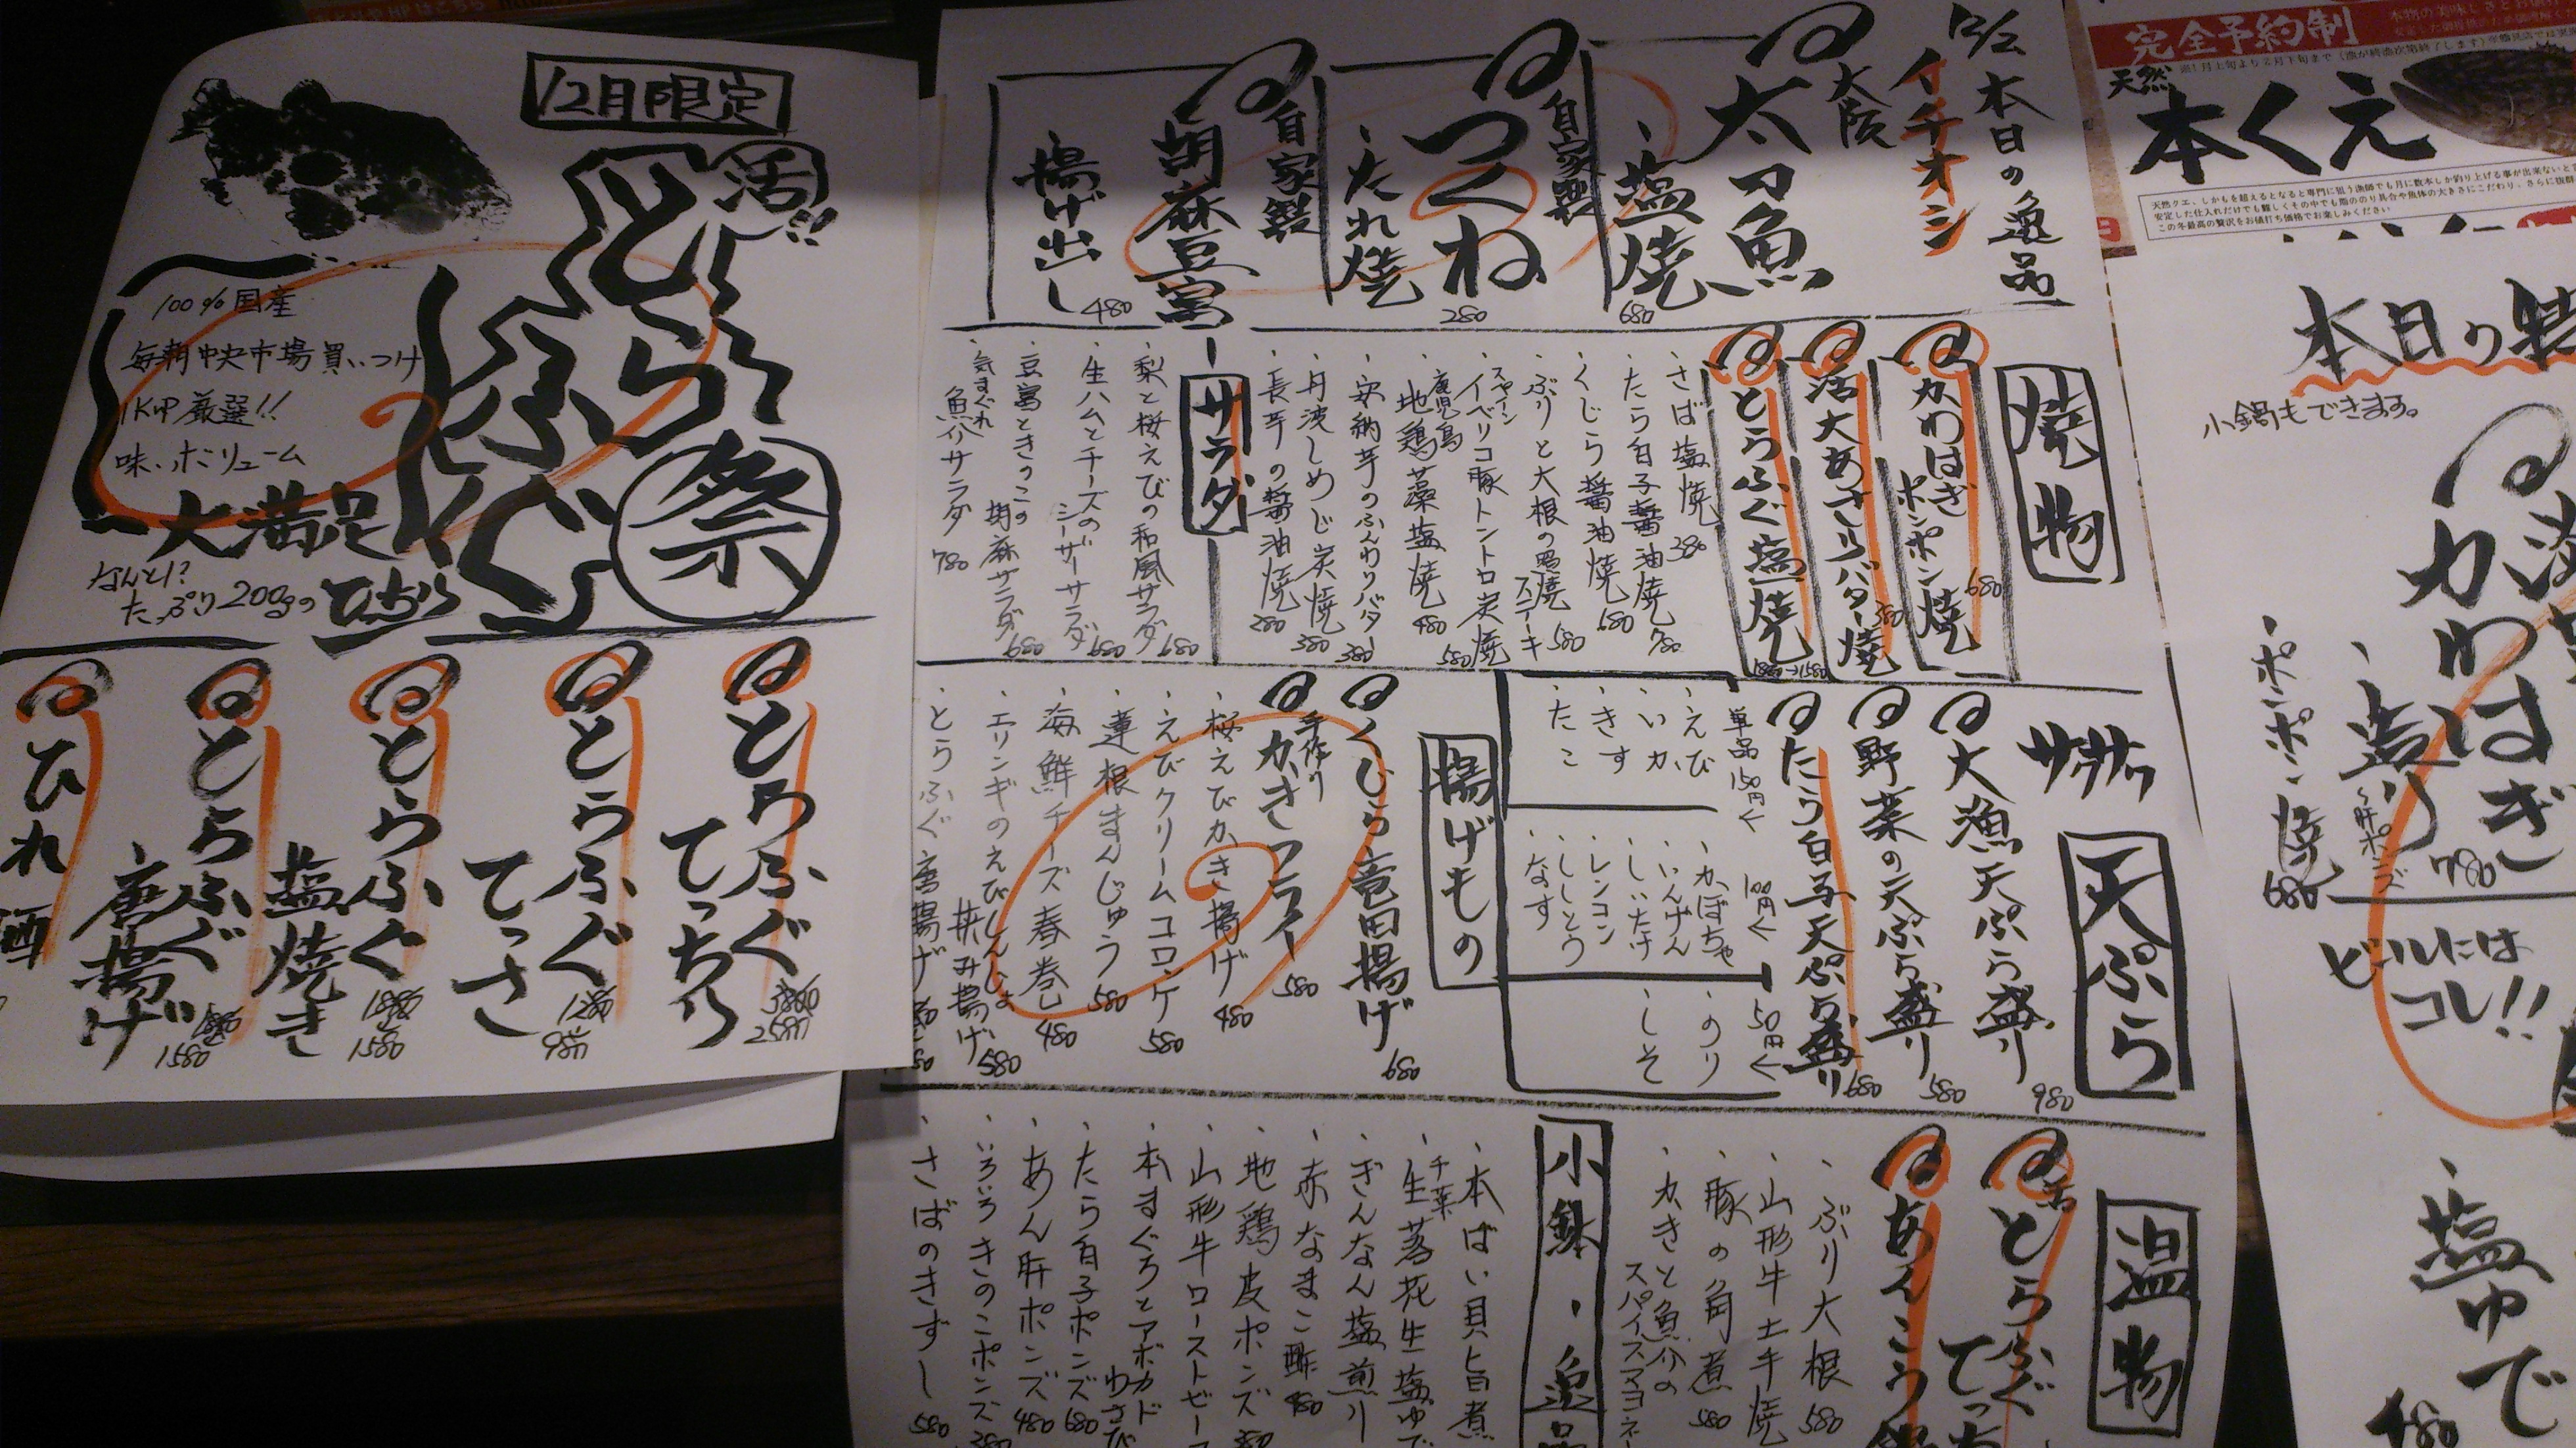 12月限定
活!!
とらふぐ
祭
100%国産
毎朝中央市場買いつけ
1kgUP厳選!!
味・ボリューム
大満足
なんと!?
たっぷり200gの
てっちり
とらふぐ
てっちり
2580
とらふぐ
てっさ
980
とらふぐ
塩焼き
1580
とらふぐ
唐揚げ
1580
ひれ酒
12/2 本日の逸品
イチオシ
大阪
太刀魚
塩焼
680
自家製
つくね
たれ焼
280
自家製
胡麻豆富
揚げ出し
480
焼物
かわはぎ
ポンポン焼
680
活大あさりバター焼
380
とらふぐ塩焼
1580
・さば塩焼
380
・たら白子醤油焼
780
・くじら醤油焼
680
・ぶりと大根の照焼
ステーキ
580
スペイン
・イベリコ豚トントロ炭焼
580
鹿児島
・地鶏藻塩焼
480
・安納芋のふんわりバター
380
・丹波しめじ炭焼
380
・長芋の醤油焼
280
サラダ
・梨と桜えびの和風サラダ
680
・生ハムとチーズの
シーザーサラダ
680
・豆富ときのこの
胡麻サラダ
680
・気まぐれ
魚介サラダ
780
サクサク
天ぷら
大漁天ぷら盛り
980
野菜の天ぷら盛り
580
たら白子天ぷら盛り
680
単品150円
・えび
・いか
・きす
・たこ
100円
・かぼちゃ
・いんげん
・しいたけ
・レンコン
・ししとう
・なす
50円
・のり
・しそ
揚げもの
くじら竜田揚げ
680
手作り
かきフライ
580
・桜えびかき揚げ
480
・えびクリームコロッケ
580
・蓮根まんじゅう
580
・海鮮チーズ春巻
480
・エリンギのえびしんじょ
挟み揚げ
580
・とらふぐ唐揚げ
温物
活とらふぐ
てっち
あんこう鍋
・ぶり大根
580
・山形牛土手焼
・豚の角煮
580
・かきと魚介の
スパイスマヨネー
小鉢・逸品
・本ばい貝旨煮
千葉
・生落花生塩ゆで
・ぎんなん塩煎り
・赤なまこ酢
480
・地鶏皮ポンズ
・山形牛ローストビー
・本まぐろとアボカド
わさび
・たら白子ポンズ
680
・あん肝ポンズ
480
・いろいろきのこポンズ
380
・さばのきずし
580
完全予約制
天然
本くえ
本日の特
小鍋もできます。
淡
かわはぎ
・造り
〜肝ポンズ
780
・ポンポン焼
680
ビールには
コレ!!
・塩ゆで
480